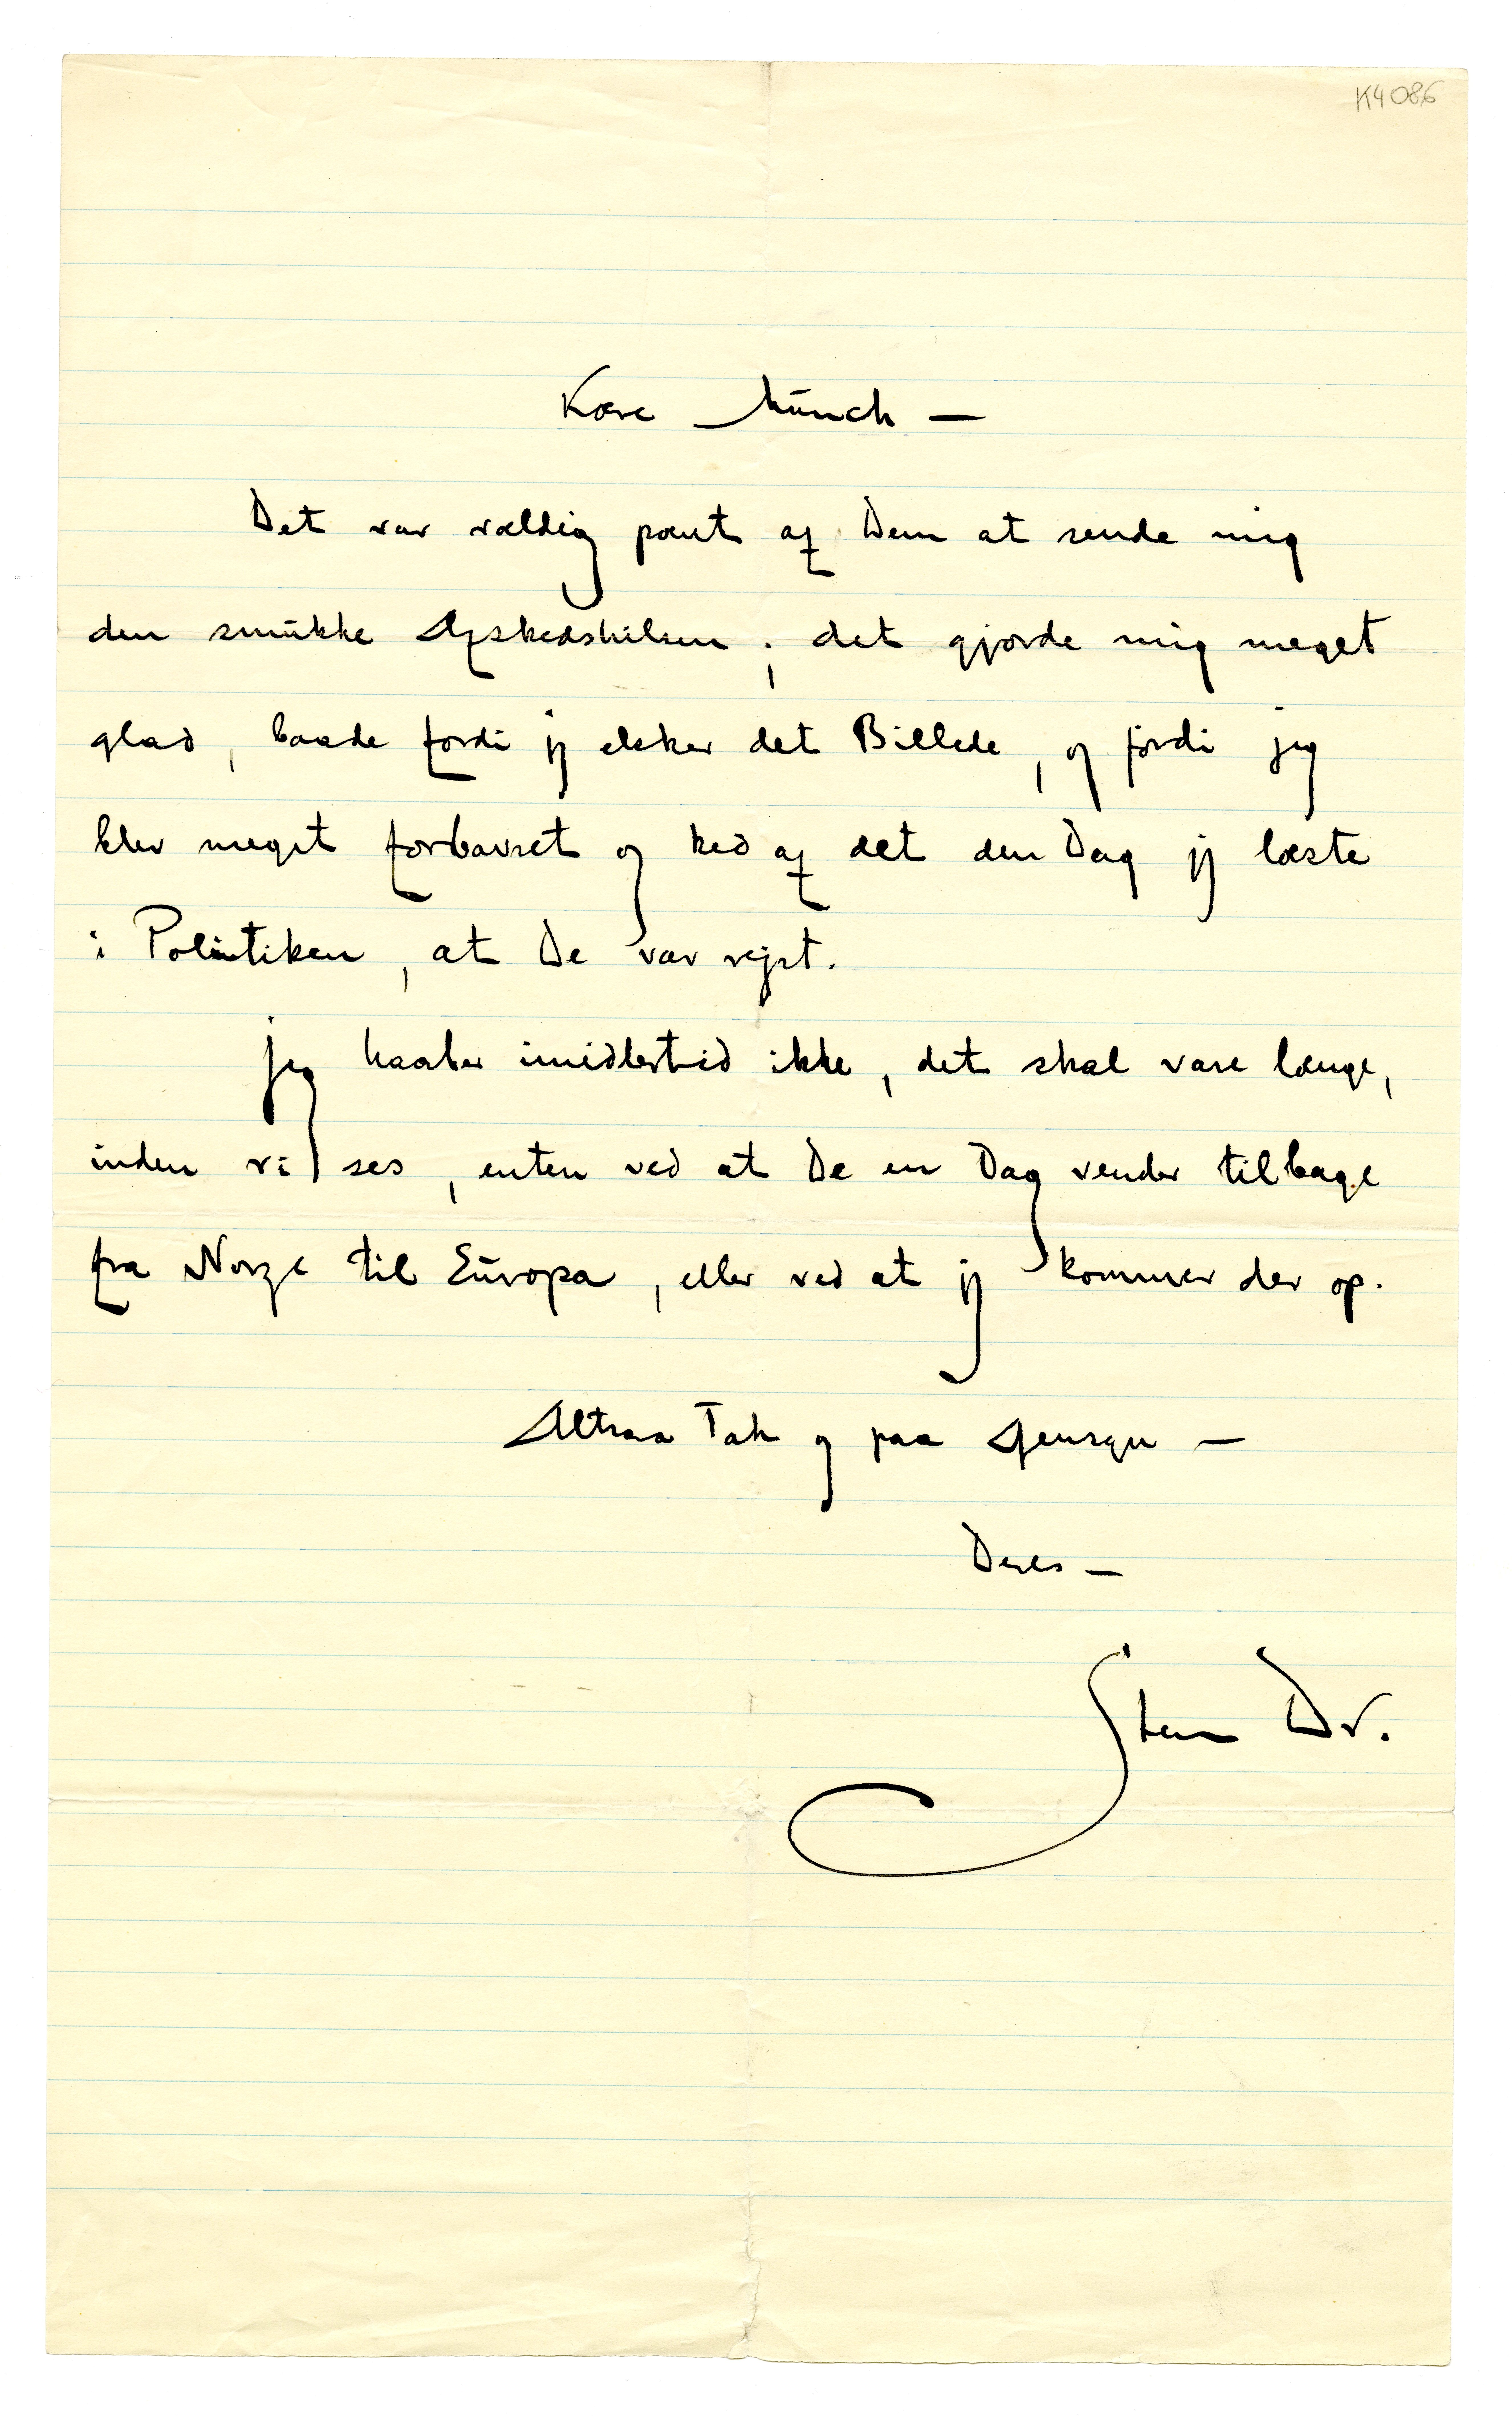 K4086
Kære Munch —
Det var vældig pænt af Dem at sende mig
den smukke Afskedshilsen; det gjorde mig meget
glad, baade fordi jeg elsker det Billede, og fordi jeg
blev meget forbavset og ked af det den Dag jeg læste
i Politiken, at De var rejst.
Jeg haaber imidlertid ikke, det skal vare længe,
inden vi ses, enten ved at De en Dag vender tilbage
fra Norge til Europa, eller ved at jeg kommer der op.
Altsaa Tak og paa Gensyn —
Deres —
Sten Dr.